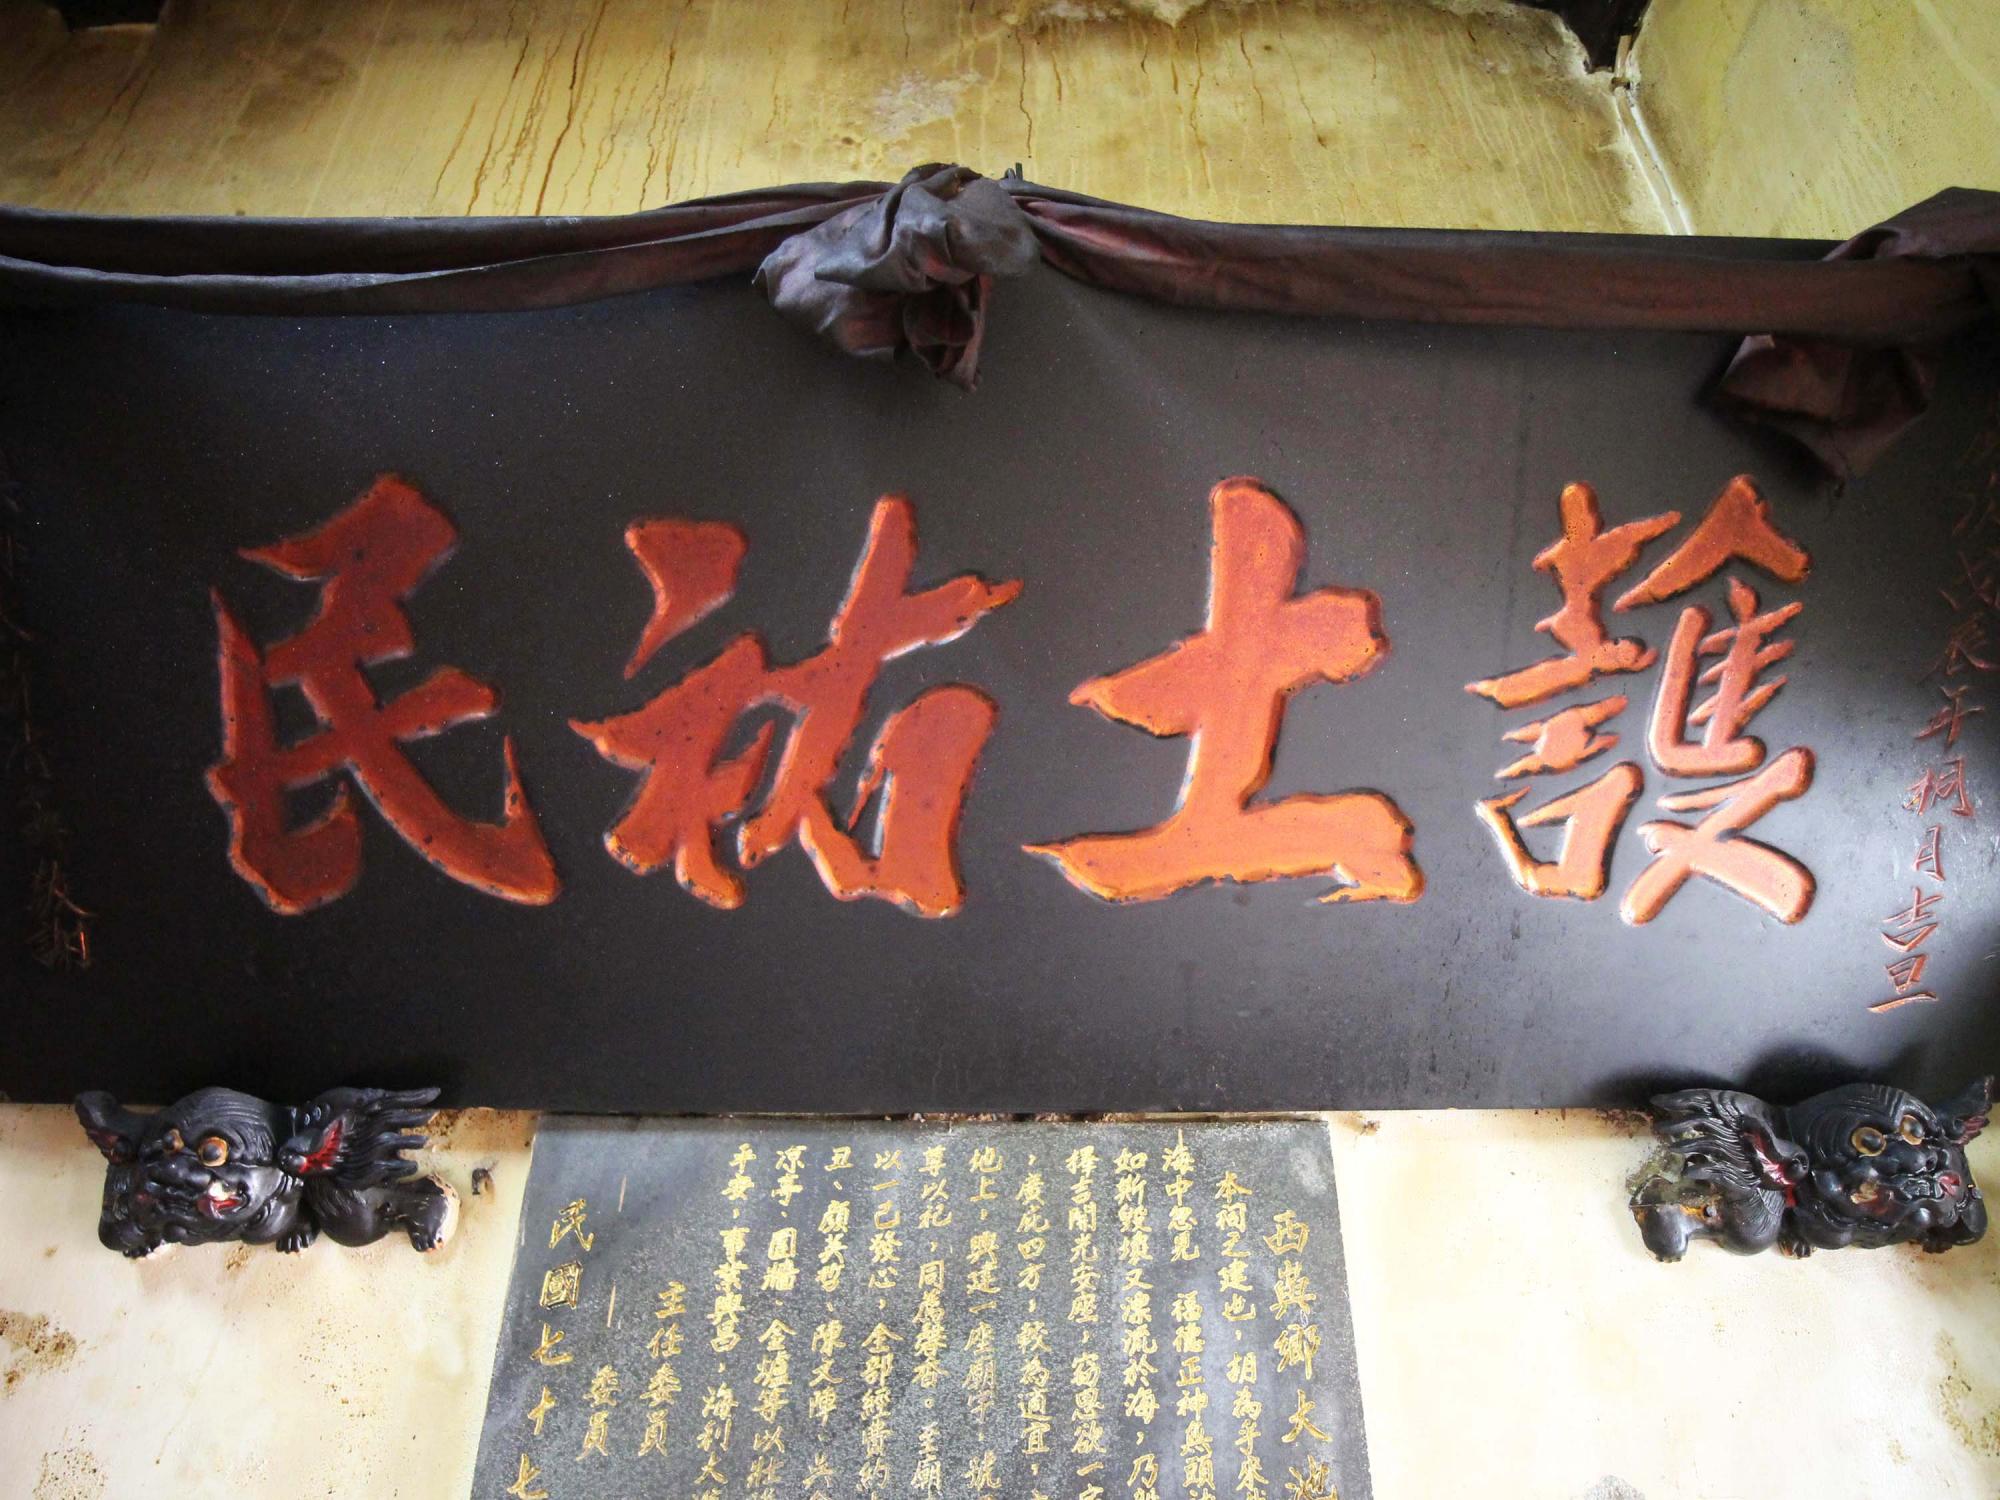 護土祐民
戊辰年桐月吉旦
敬謝
西興鄉大池
本祠之建也，胡為乎來
海中忽見　福德正神無頭
如斯毀壞又漂流於海，乃
擇吉開光安座，窃思欲一
，廣庇四方，較為適宜，
地上，興建一座廟宇，號
尊以祀，同薦馨香。至廟
以一己發心，全部經費約
丑、顏美哲、陳文陣、吳
涼亭、圍牆、金爐等以壯
平安，事業興昌，海利大
主任委員
委員
民國七十七